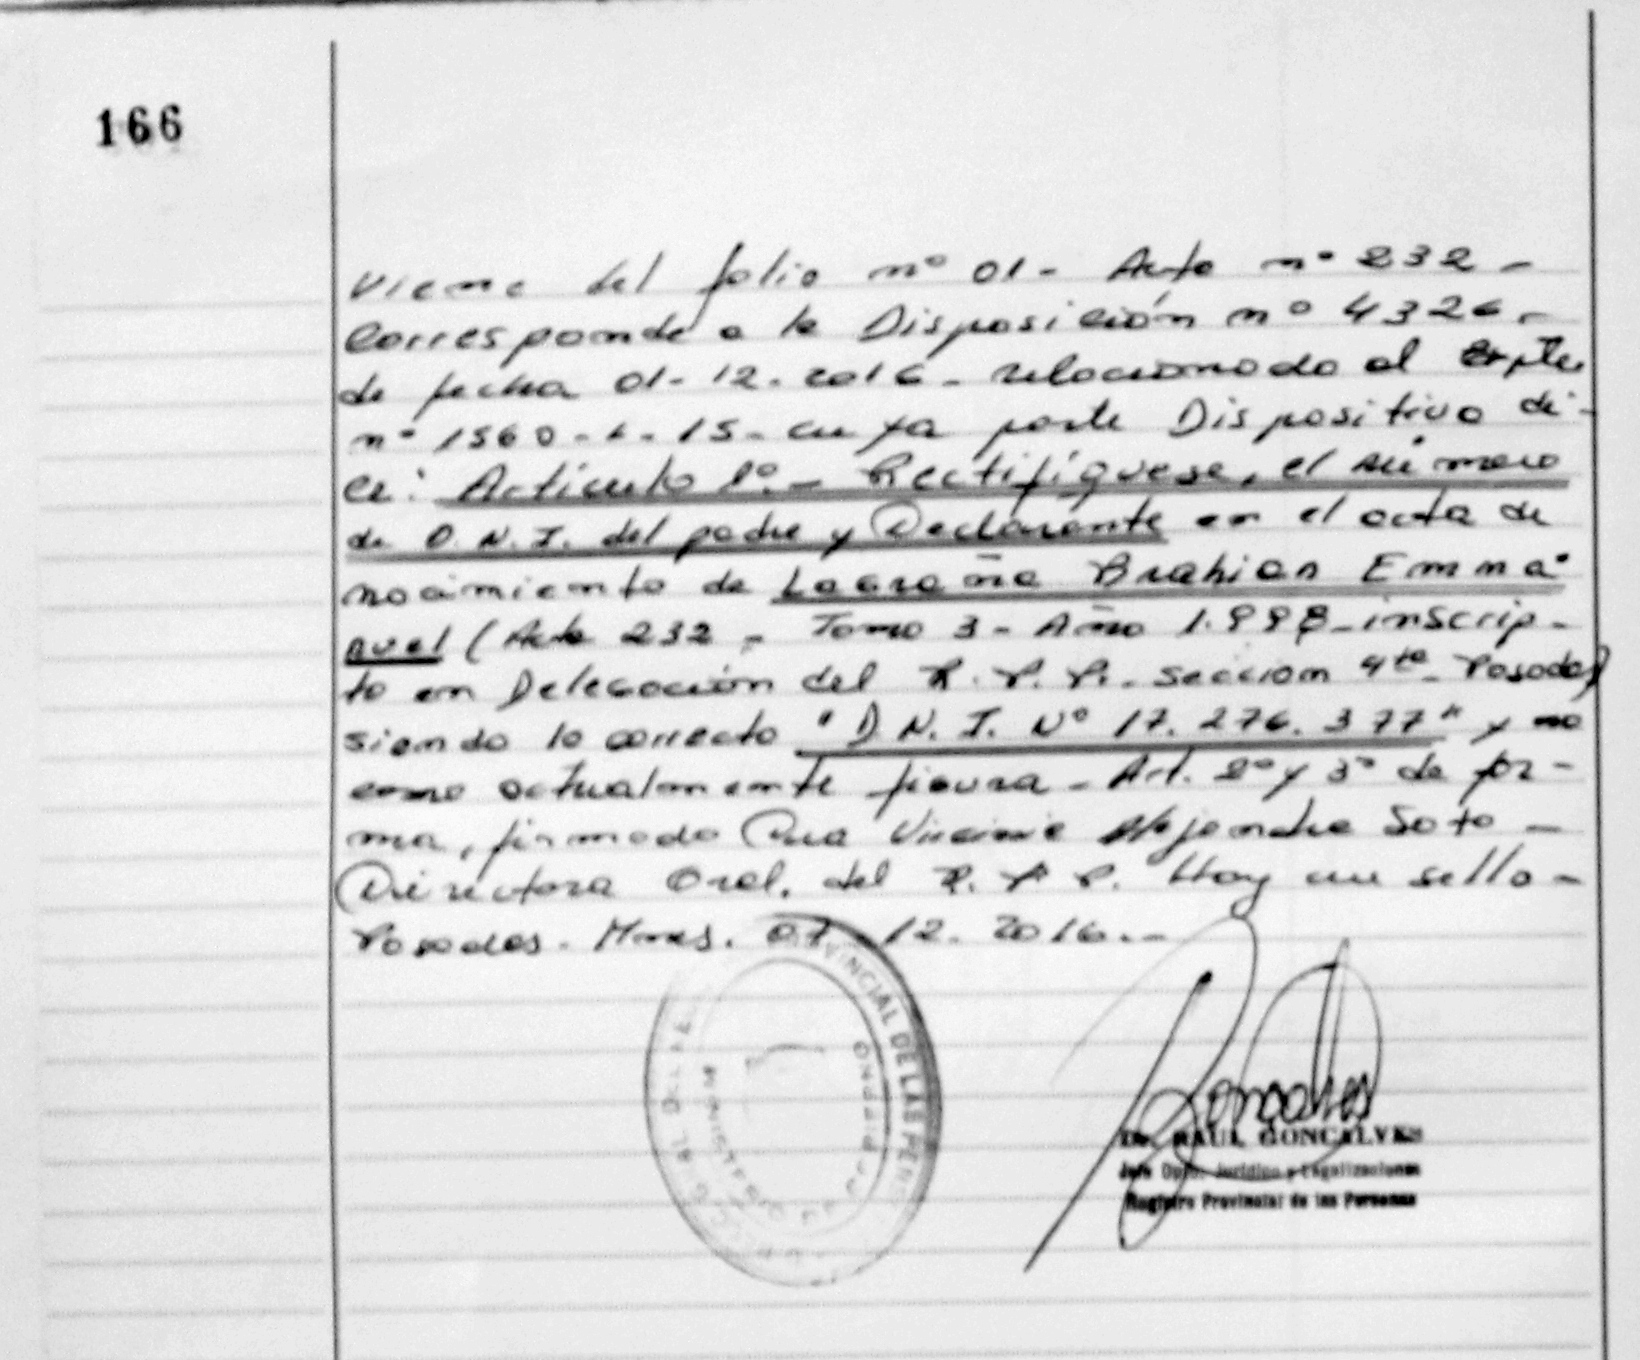 166
Viene del folio nº 01 - Acta nº 232 -
Corresponde a la Disposición nº 4326 -
de fecha 01-12-2016 - relacionado al Expte
nº 1560 - - 15 - cuya parte Dispositiva di-
ce: Artículo 1º - Rectifíquese, el número
de D.N.I. del padre y Declarante en el acta de
nacimiento de Brahian Emma-
nuel (Acta 232 - Tomo 3 - Año 1.998 - inscrip-
to en Delegación del R.P.P. - Sección 4ta - Posadas)
siendo lo correcto "D.N.I. Nº 17.276.377" y no
como actualmente figura - Art. 2º y 3º de for-
ma, firmado Alejandra Soto -
Directora Gral. del R.P.P. Hay un sello -
Posadas - Mnes. 07-12-2016.-
PROVINCIAL DE LAS PERS
Dr. RAUL GONCALVES
Jefe Dpto. Jurídico y Legalizaciones
Registro Provincial de las Personas